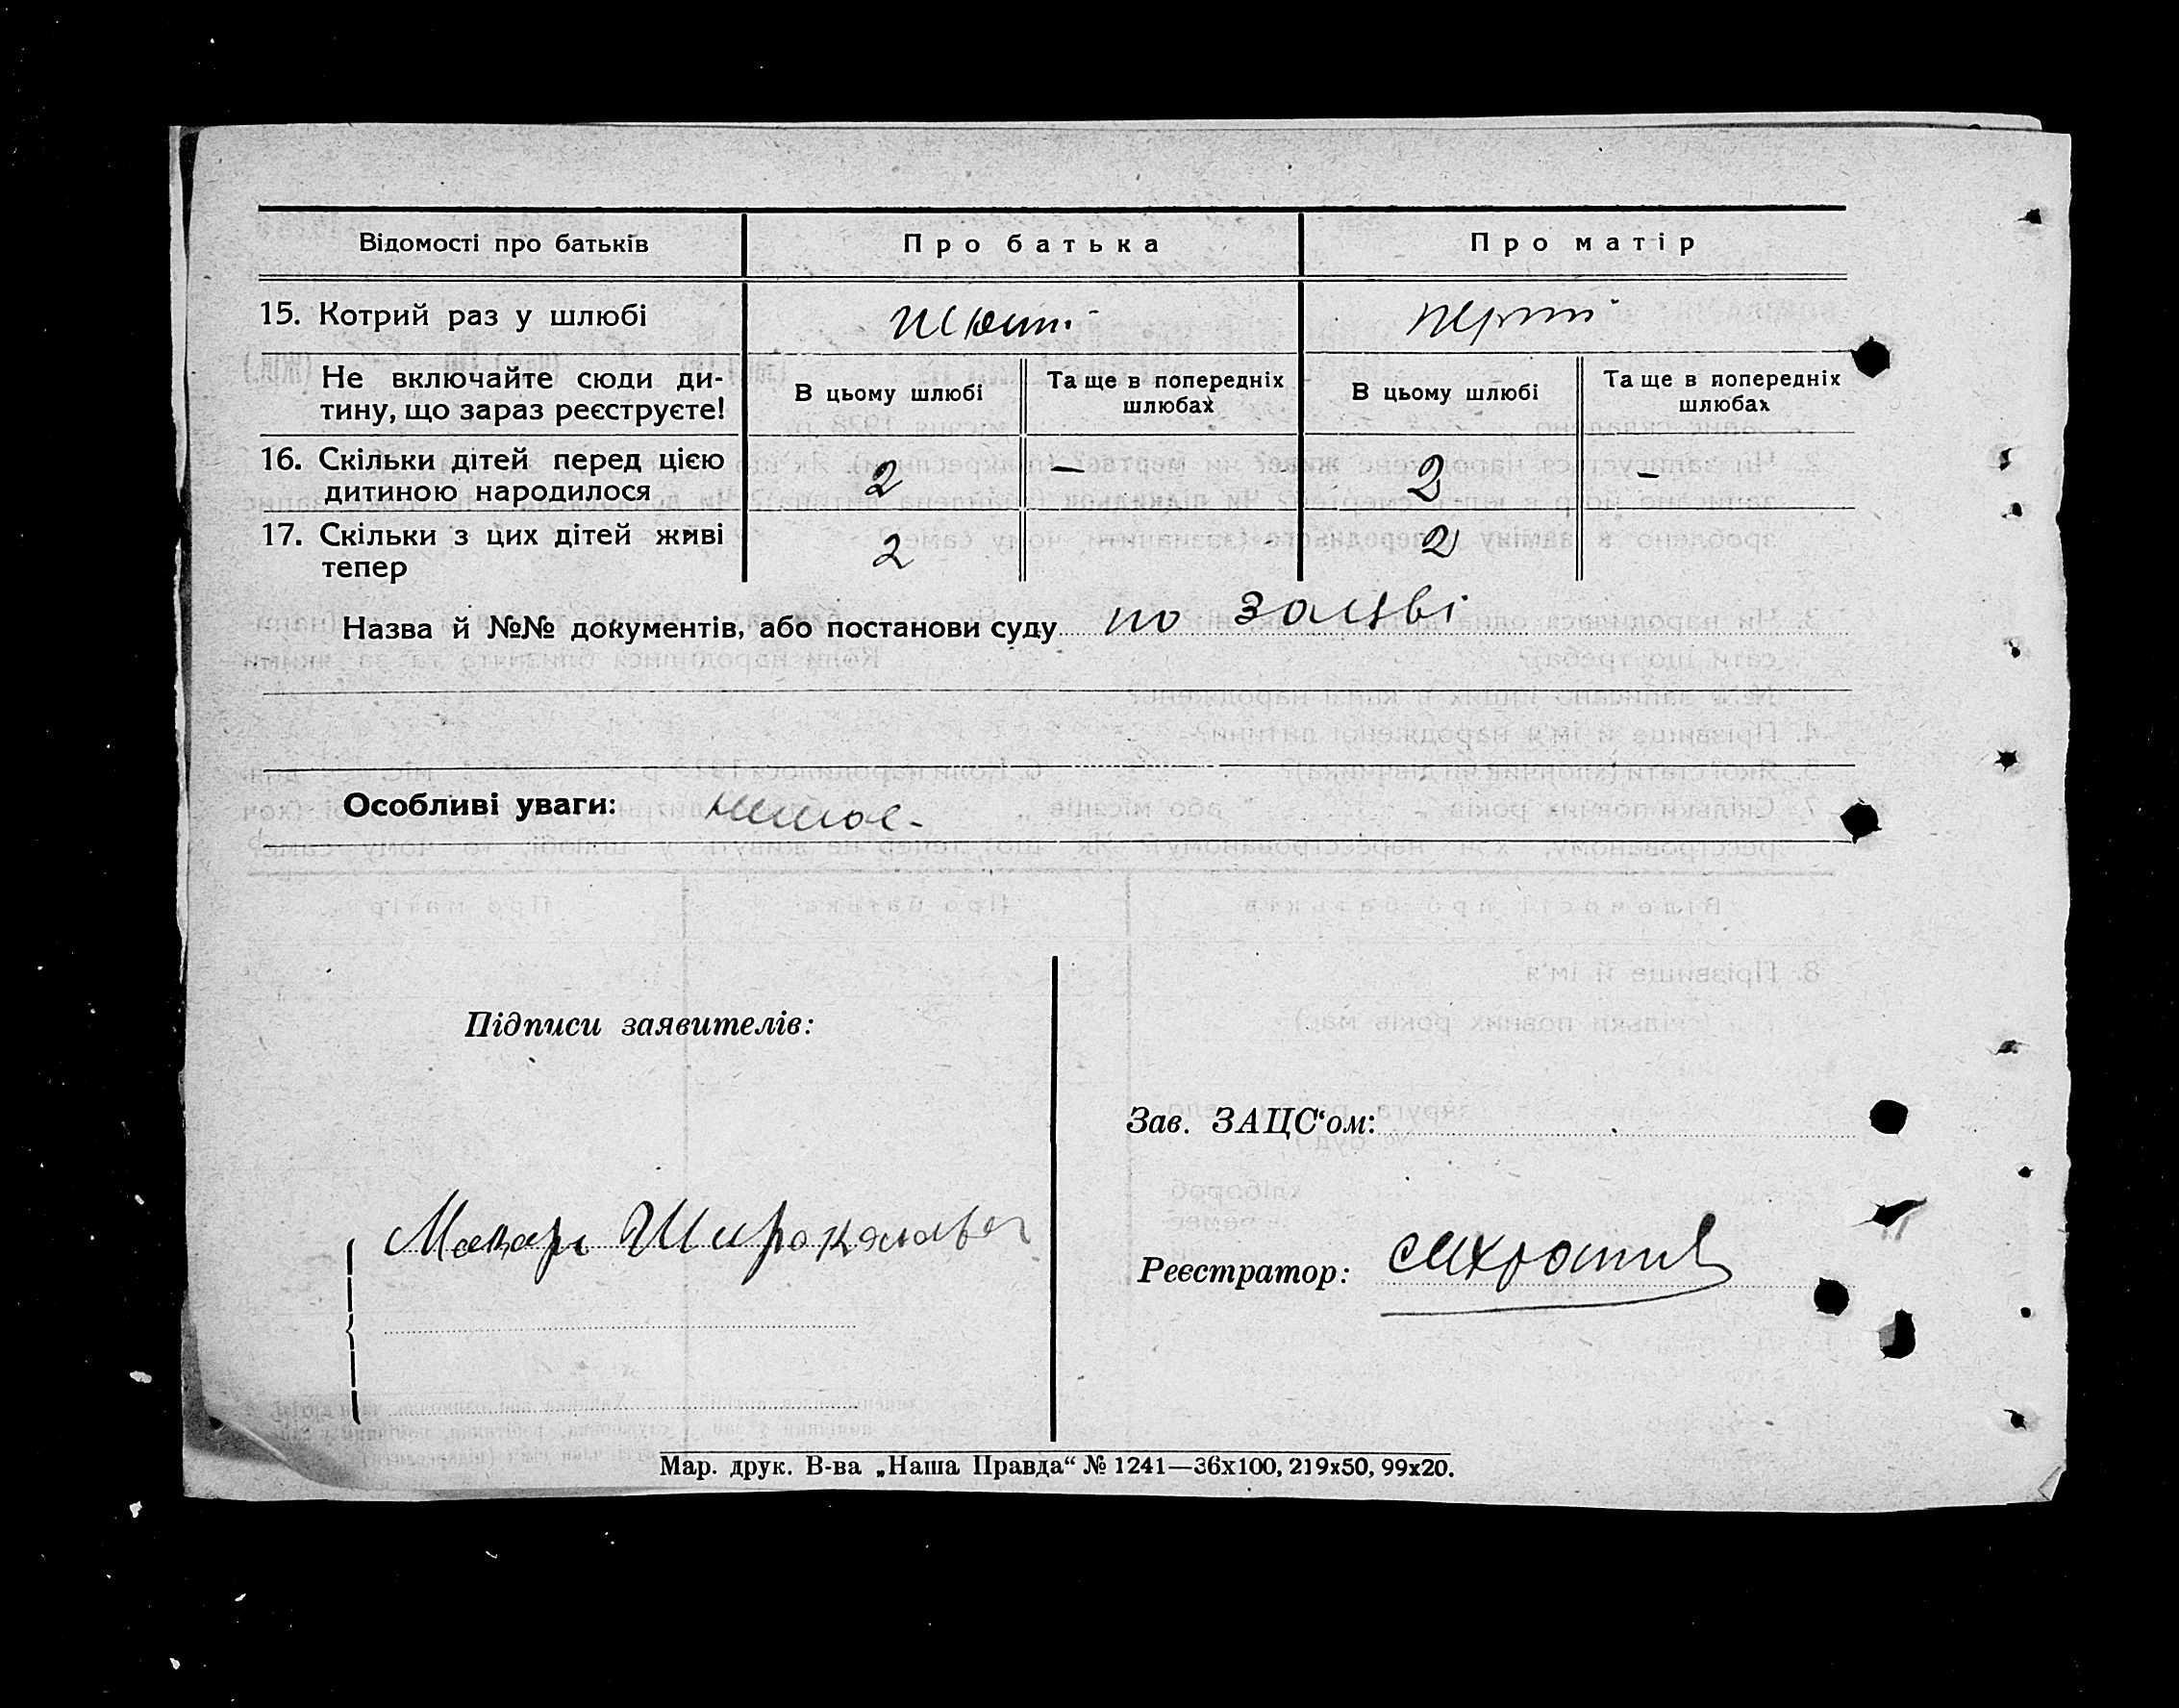 Відомості про батьків Про батька Про матір
15. Котрий раз у шлюбі перший
Не включайте сюди ди-
тину, що зараз реєструєте!
В цьому шлюбі Та ще в попередніх шлюбах В цьому шлюбі Та ще в попередніх шлюбах
16. Скільки дітей перед цією
дитиною народилося 2 – 2 –
17. Скільки з цих дітей живі
тепер 2 2
Назва й №№ документів, або постанови суду по заяві
Особливі уваги:
Підписи заявителів:
Зав. ЗАЦС‘ом:
Макар
Реєстратор:
Мар. друк. В-ва „Наша Правда“ № 1241—36х100, 219х50, 99х20.